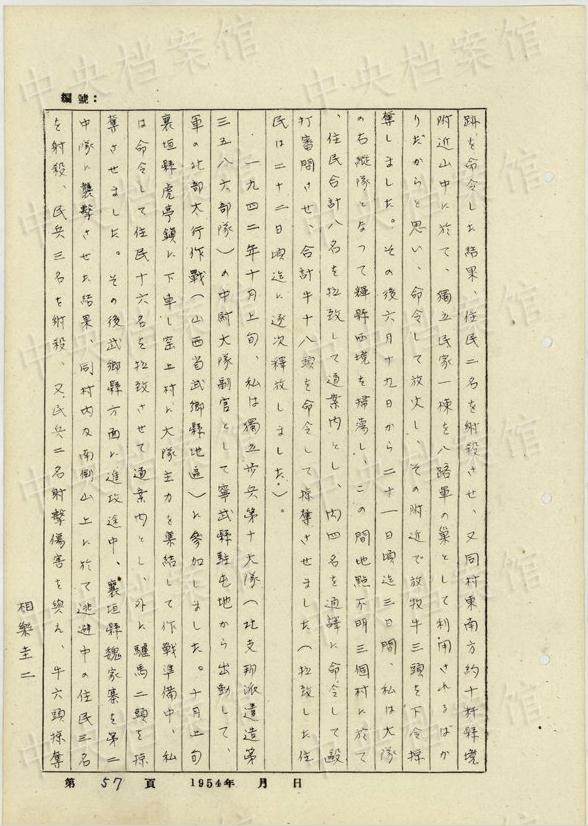 中央档案馆
編號：
跡を命令した結果、住民二名を射殺させ、又同村東南方約十粁縣境
附近山中に於て、獨立民家一棟を八路軍の巣として利用されるばか
りだからと思い、命令して放火し、その附近で放牧牛三頭を下令掠
奪しました。その後六月十九日から二十一日頃迄三日間　私は大隊
の右縦隊となって輝縣西境を掃蕩し、この間地點不明三個村に於て
、住民合計八名を拉致して道案内とし、内四名を通譯に命令して毆
打審問させ、合計牛十八頭を命令して掠奪させました（拉致した住
民は二十二日頃迄に逐次釋放しました）。
一九四二年十月上旬、私は獨立步兵第十大隊（北支那派遣造第
三五八六部隊）の中尉大隊副官として寧武縣駐屯地から出動して、
軍の北部太行作戰（山西省武郷縣地區）に参加しました。十月上旬
襄垣縣虎亭鎮に下車し窑上村に大隊主力を集結して作戰準備中、私
は命令して住民十六名を拉致させて道案内とし、外に驢馬二頭を掠
奪させました。その後武郷縣方面に進攻途中、襄垣縣魏家寨を第二
中隊に襲撃させた結果、同村内及南側山上に於て逃避中の住民三名
を射殺、民兵三名を射殺、又民兵二名射撃傷害を與え、牛六頭掠奪
相樂圭二
第 57 頁 1954年 月 日